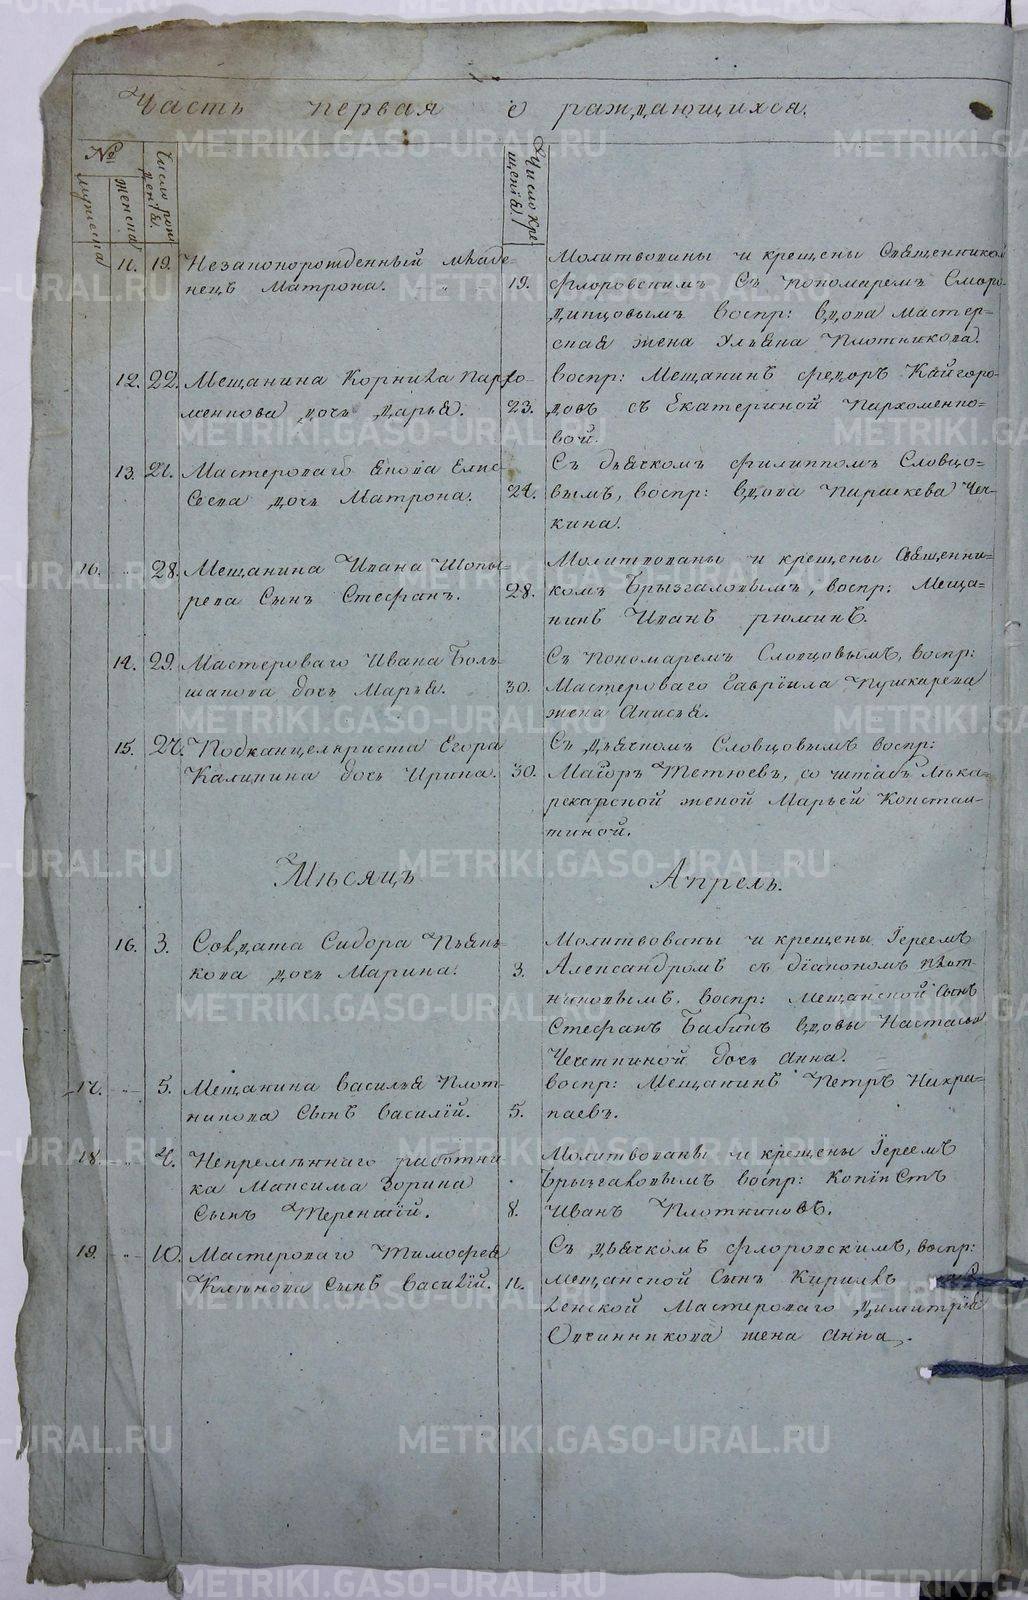 Часть первая о раждающихся.
№
мужеска
женска
Число рождения.
Число крещения.
11. 19. Незапонорожденный младе-
нецъ Матрона.
19.
Молитвованы и крещены Священникомъ
Флоровскимъ Съ пономаремъ Сморо-
динцовымъ воспр: вдова Мастер-
ская жена Ульяна Плотникова.
12. 22. Мещанина Корнила Пархо-
менкова дочь Дарья.
23.
воспр: Мещанинъ Федоръ Кайгоро-
довъ съ Екатериной Пархоменко-
вой.
13. 21. Мастероваго Якова Елис
Сеева дочь Матрона.
24.
Съ дьячкомъ Филиппомъ Словцо-
вымъ, воспр: вдова Параскева Чеч-
кина.
16. 28. Мещанина Ивана Шопы-
рева Сынъ Стефанъ.
28.
Молитвованы и крещены Священни-
комъ Брызгаловымъ, воспр: Меща-
нинъ Иванъ рюминъ.
14. 29. Мастероваго Ивана Боль-
шакова дочь Марья.
30.
Съ Пономаремъ Словцовымъ, воспр:
Мастероваго Гавріила Пушкарева
жена Анисья.
15. 27. Подканцеляриста Егора
Калинина дочь Ирина.
30.
Съ дьячкомъ Словцовымъ воспр:
Маіоръ Тетюевъ, со штабъ Лѣка-
рекарской женой Марьей Констан-
тиной.
Мѣсяцъ Апрель.
16. 3. Солдата Сидора Пьянь-
кова дочь Марина.
3.
Молитвованы и крещены Іереемъ
Александромъ съ діакономъ плот-
никовымъ. воспр: Мещанской Сынъ
Стефанъ Бабинъ вдовы Настасьи
Чечеткиной дочь Анна.
17. 5. Мещанина Василья Плот
никова Сынъ Василій.
5.
воспр: Мещанинъ Петръ Никра-
паевъ.
18. 7. Непремѣннаго работни
ка Максима Зорина
Сынъ Терентій.
8.
Молитвованы и крещены Іереемъ
Брызгаловымъ воспр: Копіистъ
Иванъ Плотниковъ.
19. 10. Мастероваго Тимофея
Клѣнова Сынъ Василій.
11.
Съ дьячкомъ Флоровскимъ, воспр:
мещанской Сынъ Кирилъ
ленской Мастероваго Димитрія
Овчинникова жена Анна.
METRIKI.GASO-URAL.RU